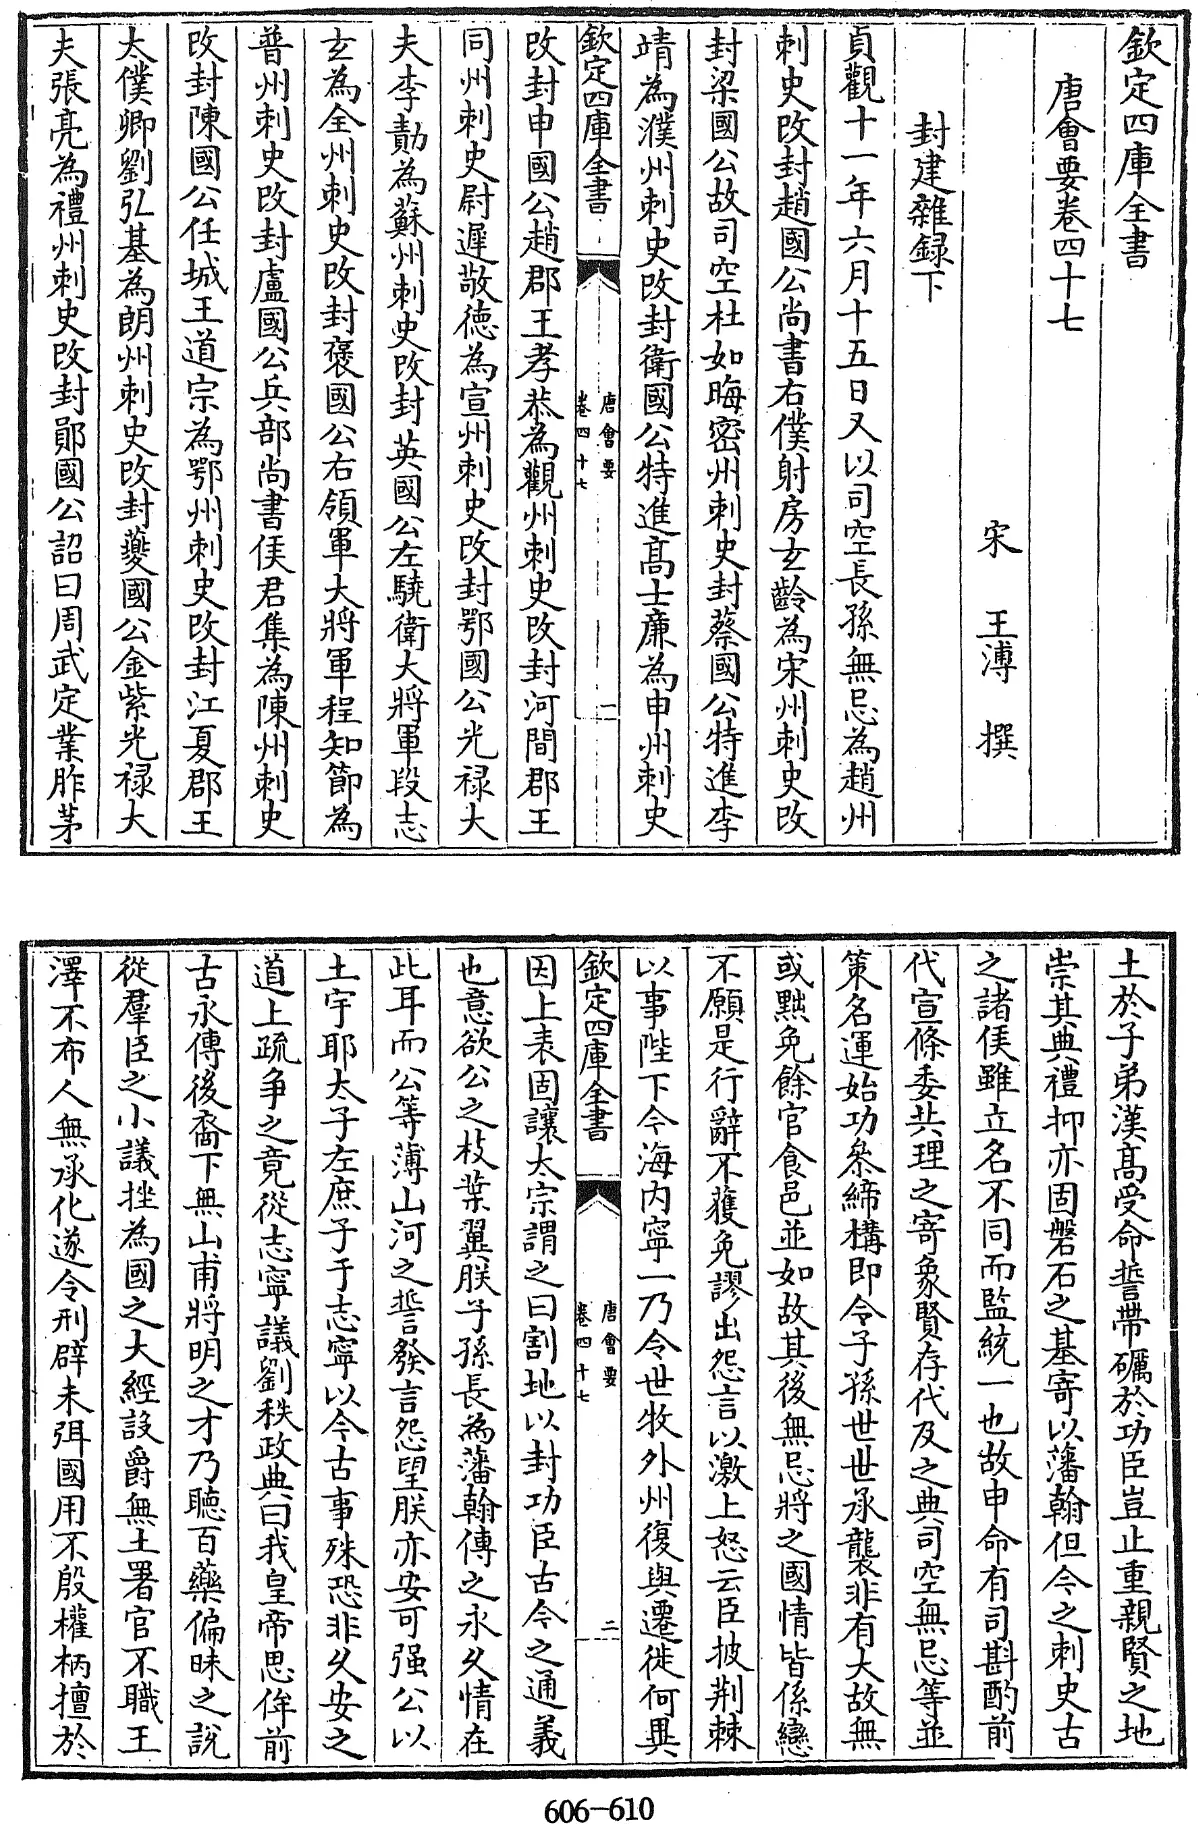 欽定四庫全書
唐會要卷四十七
宋 王溥 撰
封建雜録下
貞觀十一年六月十五日又以司空長孫無忌為趙州
刺史改封趙國公尚書右僕射房玄齡為宋州刺史改
封梁國公故司空杜如晦密州刺史封蔡國公特進李
靖為濮州刺史改封衛國公特進髙士廉為申州刺史
欽定四庫全書
唐會要
卷四十七
一
改封申國公趙郡王孝恭為觀州刺史改封河間郡王
同州刺史尉遲敬德為宣州刺史改封鄂國公光禄大
夫李勣為蘇州刺史改封英國公左驍衛大將軍段志
玄為全州刺史改封褒國公右領軍大將軍程知節為
普州刺史改封盧國公兵部尚書侯君集為陳州刺史
改封陳國公任城王道宗為鄂州刺史改封江夏郡王
太僕卿劉弘基為朗州刺史改封夔國公金紫光禄大
夫張亮為禮州刺史改封鄖國公詔曰周武定業胙茅
土於子弟漢髙受命誓帶礪於功臣豈止重親賢之地
崇其典禮抑亦固磐石之基寄以藩翰但今之刺史古
之諸侯雖立名不同而監統一也故申命有司斟酌前
代宣條委共理之寄象賢存代及之典司空無忌等並
策名運始功叅締構即令子孫世世承襲非有大故無
或黜免餘官食邑並如故其後無忌將之國情皆係戀
不願是行辭不獲免謬出怨言以激上怒云臣披荆棘
以事陛下今海内寧一乃令世牧外州復與遷徙何異
欽定四庫全書
唐會要
卷四十七
二
因上表固讓太宗謂之曰割地以封功臣古今之通義
也意欲公之枝葉翼朕子孫長為藩翰傳之永久情在
此耳而公等薄山河之誓發言怨望朕亦安可强公以
土宇耶太子左庶子于志寧以今古事殊恐非久安之
道上疏争之竟從志寧議劉秩政典曰我皇帝思侔前
古永傳後裔下無山甫將明之才乃聽百藥偏昧之説
從羣臣之小議挫為國之大經設爵無土署官不職王
澤不布人無承化遂令刑辟未弭國用不殷權柄擅於
606-610